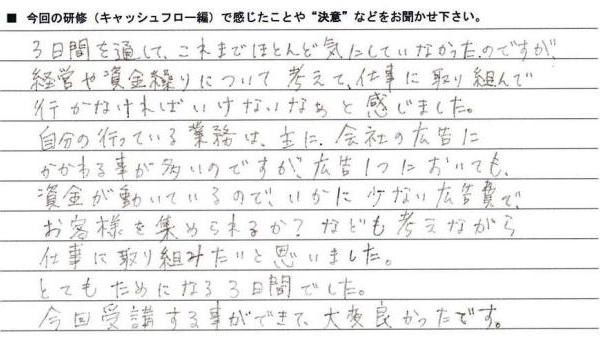 ■ 今回の研修（キャッシュフロー編）で感じたことや“決意”などをお聞かせ下さい。
3日間を通して、これまでほとんど気にしていなかったのですが、
経営や資金繰りについて考えて、仕事に取り組んで
行かなければいけないなぁと感じました。
自分の行っている業務は、主に、会社の広告に
かかわる事が多いのですが、広告1つにおいても、
資金が動いているので、いかに少ない広告費で、
お客様を集められるか？なども考えながら
仕事に取り組みたいと思いました。
とてもためになる3日間でした。
今回受講する事ができて、大変良かったです。